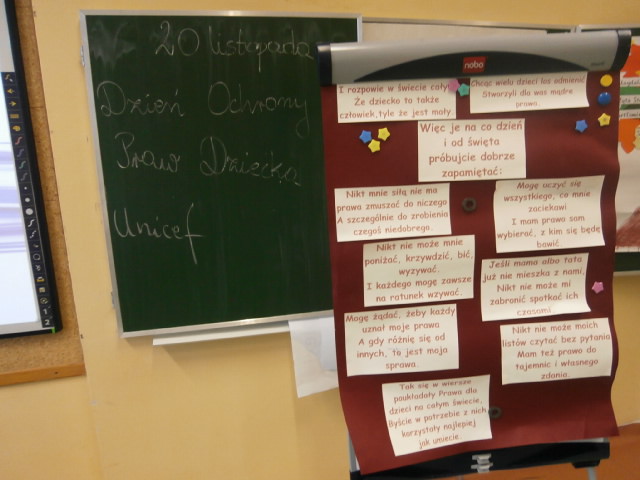 20 listopada
Dzień Ochrony
Praw Dziecka
Unicef
nobo
I rozpowie w świecie całym
Że dziecko to także
człowiek, tyle że jest mały.
Chcąc wielu dzieci los odmienić
Stworzyli dla was mądre
prawa.
Więc je na co dzień
i od święta
próbujcie dobrze
zapamiętać:
Nikt mnie siłą nie ma
prawa zmuszać do niczego
A szczególnie do zrobienia
czegoś niedobrego.
Mogę uczyć się
wszystkiego, co mnie
zaciekawi
I mam prawo sam
wybierać, z kim się będę
bawić
Nikt nie może mnie
poniżać, krzywdzić, bić,
wyzywać.
I każdego mogę zawsze
na ratunek wzywać.
Jeśli mama albo tata
już nie mieszka z nami,
Nikt nie może mi
zabronić spotkać ich
czasami.
Mogę żądać, żeby każdy
uznał moje prawa
A gdy różnię się od
innych, to jest moja
sprawa
Nikt nie może moich
listów czytać bez pytania
Mam też prawo do
tajemnic i własnego
zdania.
Tak się w wiersze
poukładały Prawa dla
dzieci na całym świecie,
Byście w potrzebie z nich
korzystały najlepiej
jak umiecie.
1
2